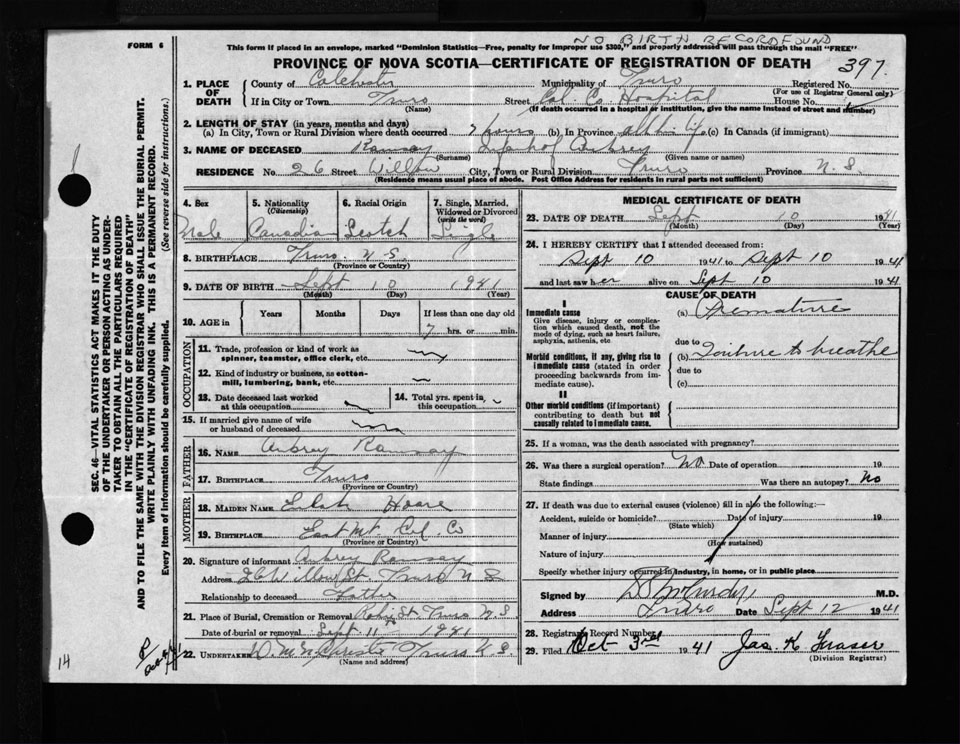 NO BIRTH RECORD FOUND
FORM 6
This form if placed in an envelope, marked "Dominion Statistics—Free, penalty for improper use $300," and properly addressed will pass through the mail "FREE"
PROVINCE OF NOVA SCOTIA—CERTIFICATE OF REGISTRATION OF DEATH
397.
1. PLACE OF DEATH
County of Colchester Municipality of Truro Registered No.
(For use of Registrar General only)
If in City or Town Truro Street Col. Co Hospital House No.
(Name) (If death occurred in a hospital or institution, give the name instead of street and number)
2. LENGTH OF STAY (in years, months and days)
(a) In City, Town or Rural Division where death occurred 7 hours (b) In Province all his life (c) In Canada (if immigrant)
3. NAME OF DECEASED Ramsay Infant of Aubrey
(Surname) (Given name or names)
RESIDENCE No. 26 Street Willow City, Town or Rural Division Truro Province N.S.
(Residence means usual place of abode. Post Office Address for residents in rural parts not sufficient)
4. Sex 5. Nationality (Citizenship) 6. Racial Origin 7. Single, Married, Widowed or Divorced (write the word)
Male Canadian Scotch Single
8. BIRTHPLACE Truro N.S.
(Province or Country)
9. DATE OF BIRTH Sept 10 1941
(Month) (Day) (Year)
10. AGE in Years Months Days If less than one day old
7 hrs. or min.
OCCUPATION
11. Trade, profession or kind of work as spinner, teamster, office clerk, etc.
12. Kind of industry or business, as cotton-mill, lumbering, bank, etc.
13. Date deceased last worked at this occupation
14. Total yrs. spent in this occupation
15. If married give name of wife or husband of deceased
FATHER
16. NAME Aubrey Ramsay
17. BIRTHPLACE Truro
(Province or Country)
MOTHER
18. MAIDEN NAME Hoare
19. BIRTHPLACE East Mt Col. Co
(Province or Country)
20. Signature of informant Aubrey Ramsay
Address 26 Willow St. Truro N S
Relationship to deceased Father
21. Place of Burial, Cremation or Removal Robie St Truro N.S
Date of burial or removal Sept 11 1941
22. UNDERTAKER Truro N.S.
(Name and address)
MEDICAL CERTIFICATE OF DEATH
23. DATE OF DEATH Sept 10 1941
(Month) (Day) (Year)
24. I HEREBY CERTIFY that I attended deceased from:
Sept 10 1941 to Sept 10 1941
and last saw her alive on Sept 10 1941
CAUSE OF DEATH
I
Immediate cause
Give disease, injury or complication which caused death, not the mode of dying, such as heart failure, asphyxia, asthenia, etc
(a) Premature
due to
Morbid conditions, if any, giving rise to immediate cause (stated in order proceeding backwards from immediate cause).
(b) Failure to breathe
due to
(c)
II
Other morbid conditions (if important) contributing to death but not causally related to immediate cause.
25. If a woman, was the death associated with pregnancy?
26. Was there a surgical operation? No Date of operation 19
State findings Was there an autopsy? No
27. If death was due to external causes (violence) fill in also the following:—
Accident, suicide or homicide? Date of injury 19
(State which)
Manner of injury
(How sustained)
Nature of injury
Specify whether injury occurred in industry, in home, or in public place
Signed by M.D.
Address Truro Date Sept 12 1941
28. Registrars Record Number
29. Filed Oct 3rd 1941 Jas. K Fraser
(Division Registrar)
SEC. 46—VITAL STATISTICS ACT MAKES IT THE DUTY
OF THE UNDERTAKER OR PERSON ACTING AS UNDERTAKER TO OBTAIN ALL THE PARTICULARS REQUIRED
IN THE "CERTIFICATE OF REGISTRATION OF DEATH"
AND TO FILE THE SAME WITH THE DIVISION REGISTRAR WHO SHALL ISSUE THE BURIAL PERMIT.
WRITE PLAINLY WITH UNFADING INK. THIS IS A PERMANENT RECORD.
Every item of information should be carefully supplied. (See reverse side for instructions.)
14